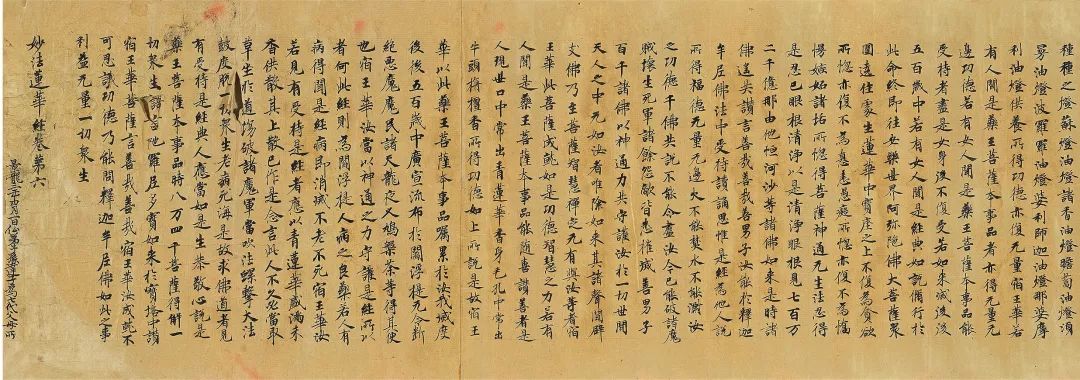 種種之燈蘇燈油燈諸香油燈瞻蔔油燈須
曼油燈波羅油燈婆利師迦油燈那婆摩
利油燈供養所得功德亦復无量宿王華若
有人聞是藥王菩薩本事品者亦得无量无
邊功德若有女人聞是藥王菩薩本事品能
受持者盡是女身後不復受若如來滅後後
五百歲中若有女人聞是經典如說脩行於
此命終即往安樂世界阿弥陁佛大菩薩衆
圍遶住處生蓮華中寶座之上不復為貪欲
所惱亦復不為瞋恚愚癡所惱亦復不為憍
慢嫉妬諸垢所惱得菩薩神通无生法忍得
是忍已眼根清淨以是清淨眼根見七百万
二千億那由他恒河沙等諸佛如來是時諸
佛遙共讚言善哉善哉善男子汝能於釋迦
牟尼佛法中受持讀誦思惟是經為他人說
所得福德无量无邊火不能焚水不能漂汝
之功德千佛共說不能令盡汝今已能破諸魔
賊壞生死軍諸餘怨敵皆悉摧滅善男子
百千諸佛以神通力共守護汝於一切世間
天人之中无如汝者唯除如來其諸聲聞辟
支佛乃至菩薩智慧禪定无有與汝等者宿
王華此菩薩成就如是功德智慧之力若有
人聞是藥王菩薩本事品能隨喜讚善者是
人現世口中常出青蓮華香身毛孔中常出
牛頭栴檀香所得功德如上所說是故宿王
華以此藥王菩薩本事品囑累於汝我滅度
後後五百歲中廣宣流布於閻浮提无令斷
絕惡魔魔民諸天龍夜叉鳩槃荼等得其便
也宿王華汝當以神通之力守護是經所以
者何此經則為閻浮提人病之良藥若人有
病得聞是經病即消滅不老不死宿王華汝
若見有受持是經者應以青蓮華盛滿末
香供散其上散已作是念言此人不久必當取
草坐於道場破諸魔軍當吹法螺擊大法
鼓度脫一切衆生老病死海是故求佛道者見
有受持是經典人應當如是生恭敬心說是
藥王菩薩本事品時八万四千菩薩得解一
切衆生語言陁羅尼多寶如來於寶塔中讚
宿王華菩薩言善哉善哉宿王華汝成就不
可思議功德乃能問釋迦牟尼佛如此之事
利益无量一切衆生
妙法蓮華經卷第六